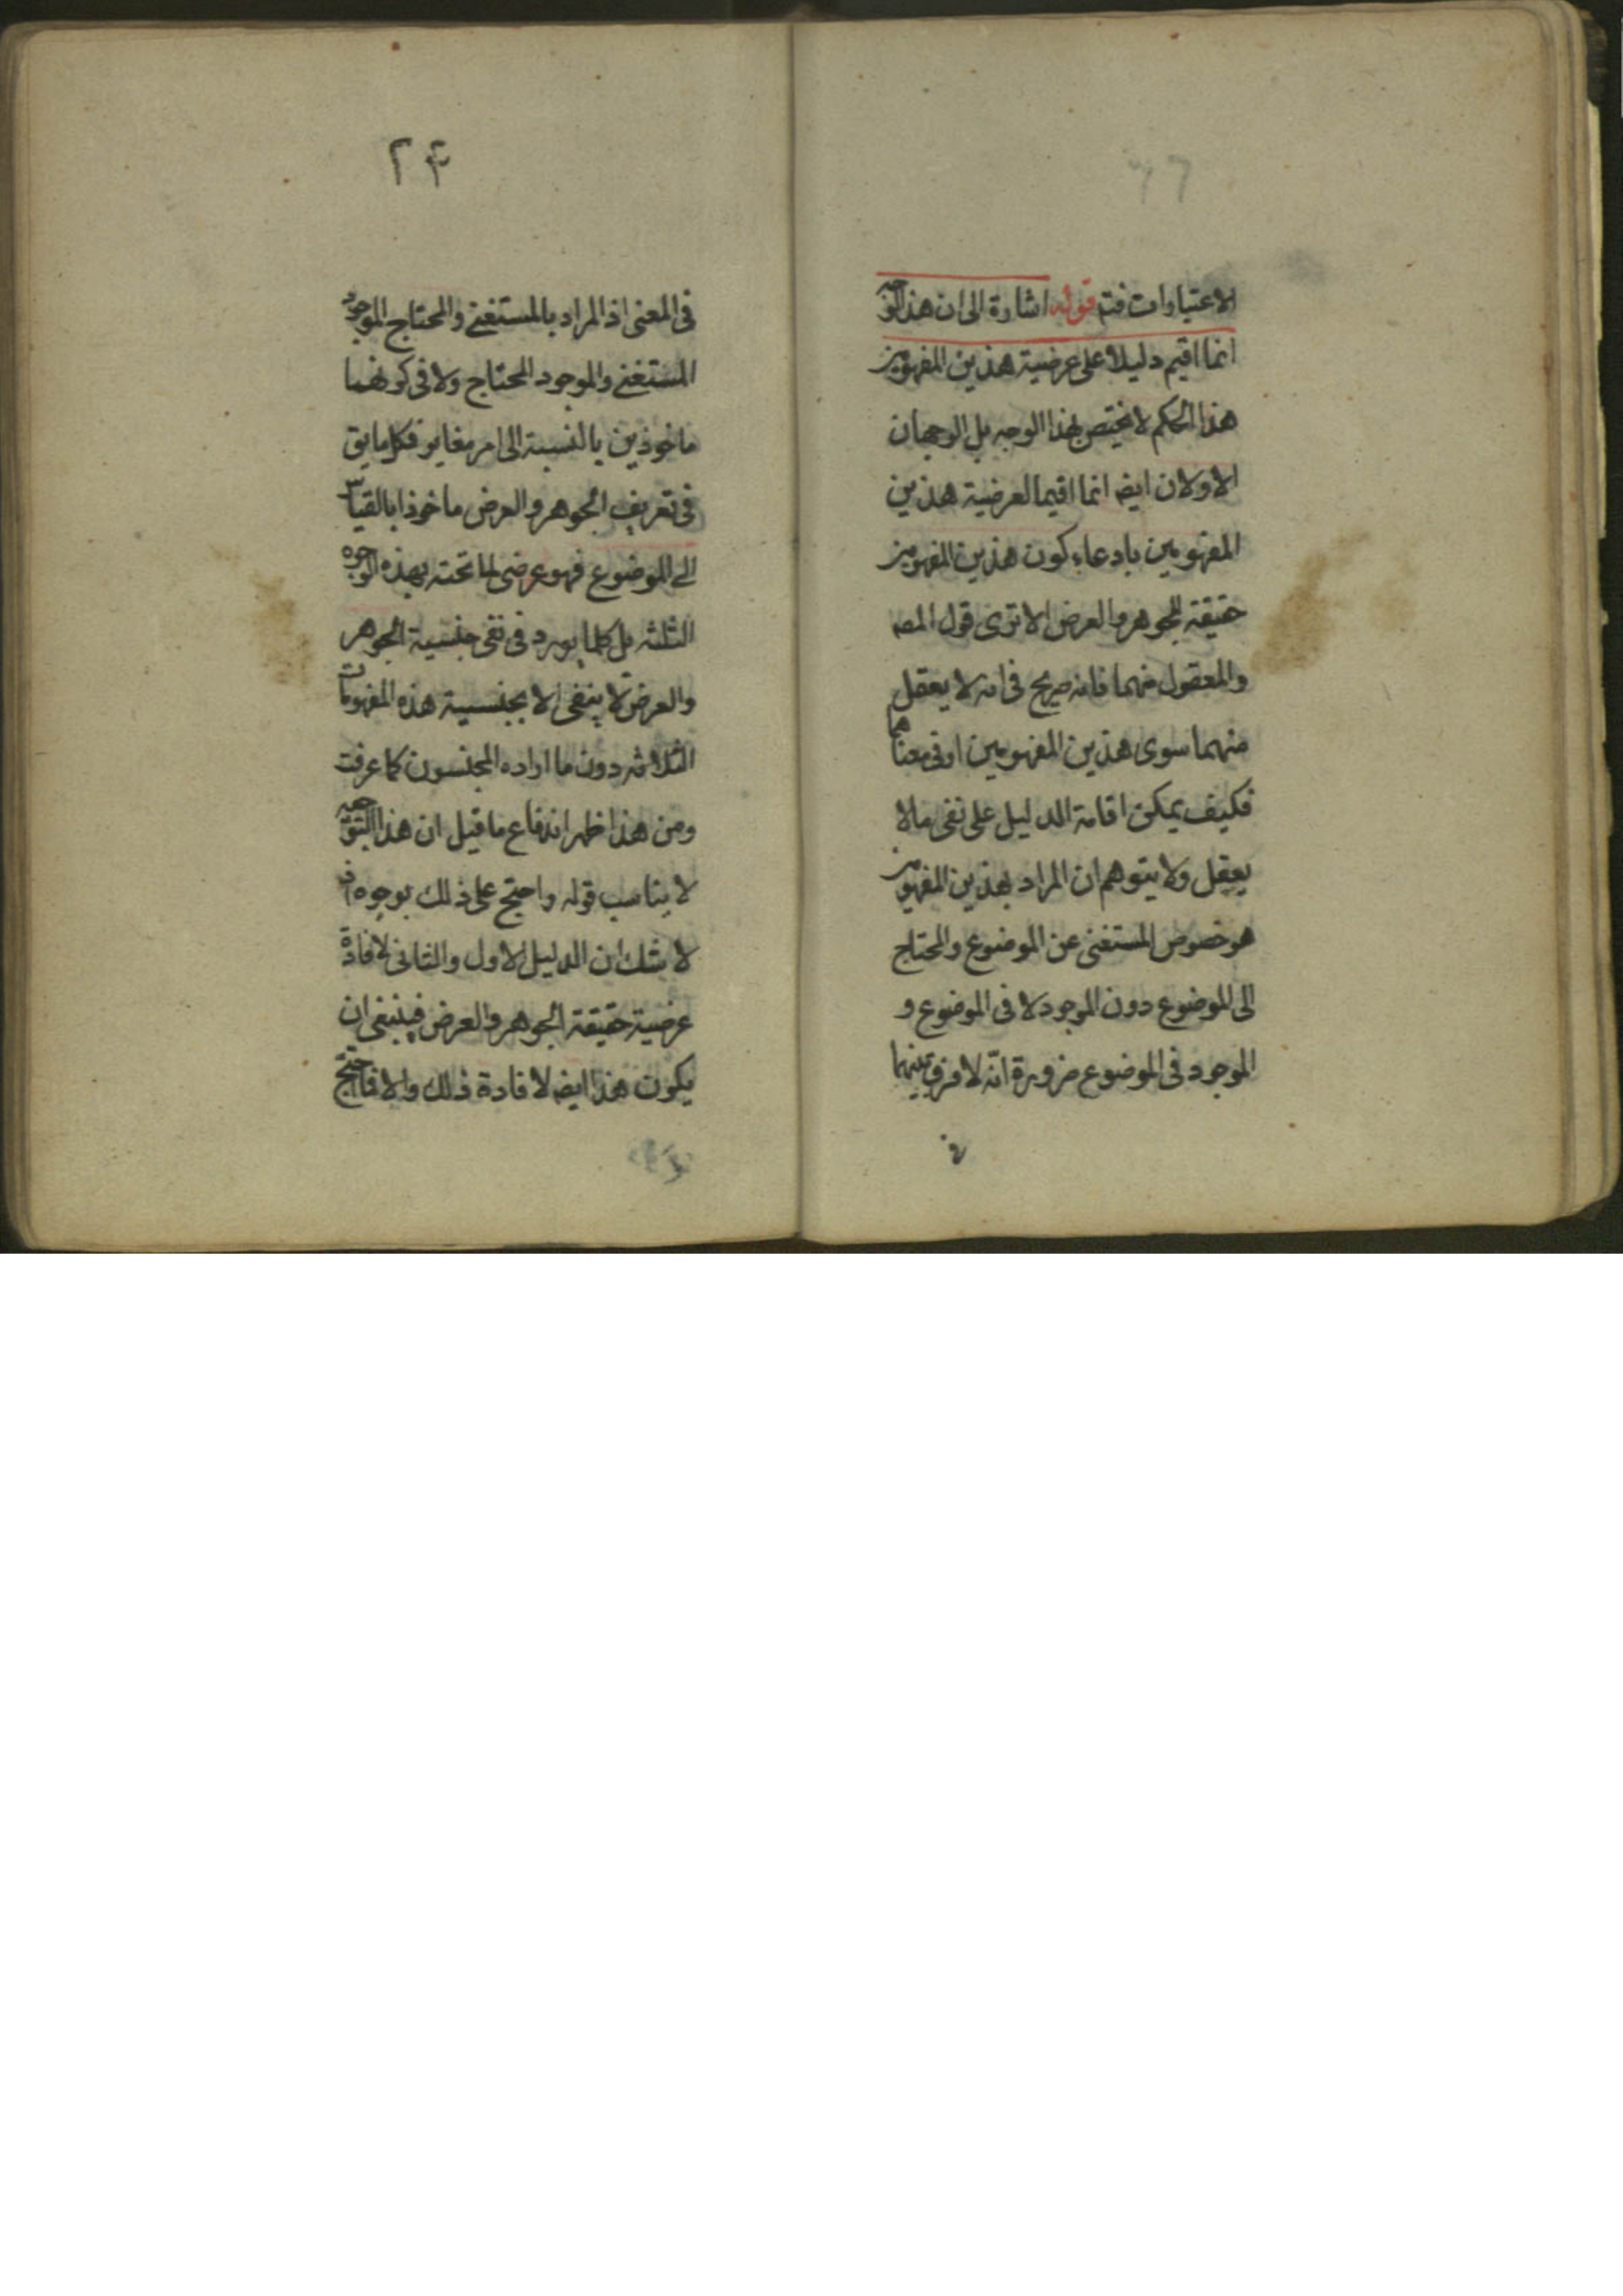 الاعتبارات فتم قوله اشارة الى ان هذا الوجه
انما اقيم دليلا على عرضية هذين المفهومين
هذا الحكم لا يختص بهذا الوجه بل الوجهان
الاولان ايضه انما اقيما لعرضية هذين
المفهومين بادعاء كون هذين المفهومين
حقيقة للجوهر والعرض الا ترى قول المصه
والمعقول منهما فانه صريح فى انه لا يعقل
منهما سوى هذين المفهومين او فى معناهما
فكيف يمكن اقامة الدليل على نفى ما لا
يعقل ولا يتوهم ان المراد بهذين المفهومين
هو خصوص المستغنى عن الموضوع والمحتاج
الى الموضوع دون الموجود لا فى الموضوع و
الموجود فى الموضوع ضرورة انّه لا فرق بينهما
فى
۲۴
فى المعنى اذ المراد بالمستغنى والمحتاج الموجود
المستغنى والموجود المحتاج ولا فى كونهما
ماخوذين بالنسبة الى امر مغاير فكلما يق
فى تعريف الجوهر والعرض ماخوذا بالقياس
الى الموضوع فهو عرضى لما تحته بهذه الوجوه
الثلثه بل كلما يورد فى نفى جنسية الجوهر
والعرض لا ينفى الا بجنسية هذه المفهومات
الثلاثه دون ما اراده المجنسون كما عرفت
ومن هذا ظهر اندفاع ما قيل ان هذا التوجيه
لا يناسب قوله واحتج على ذلك بوجوه اذ
لا شك ان الدليل الاول والثانى لافادة
عرضية حقيقة الجوهر والعرض فينبغى ان
يكون هذا ايضه لافادة ذلك والا فاحتج